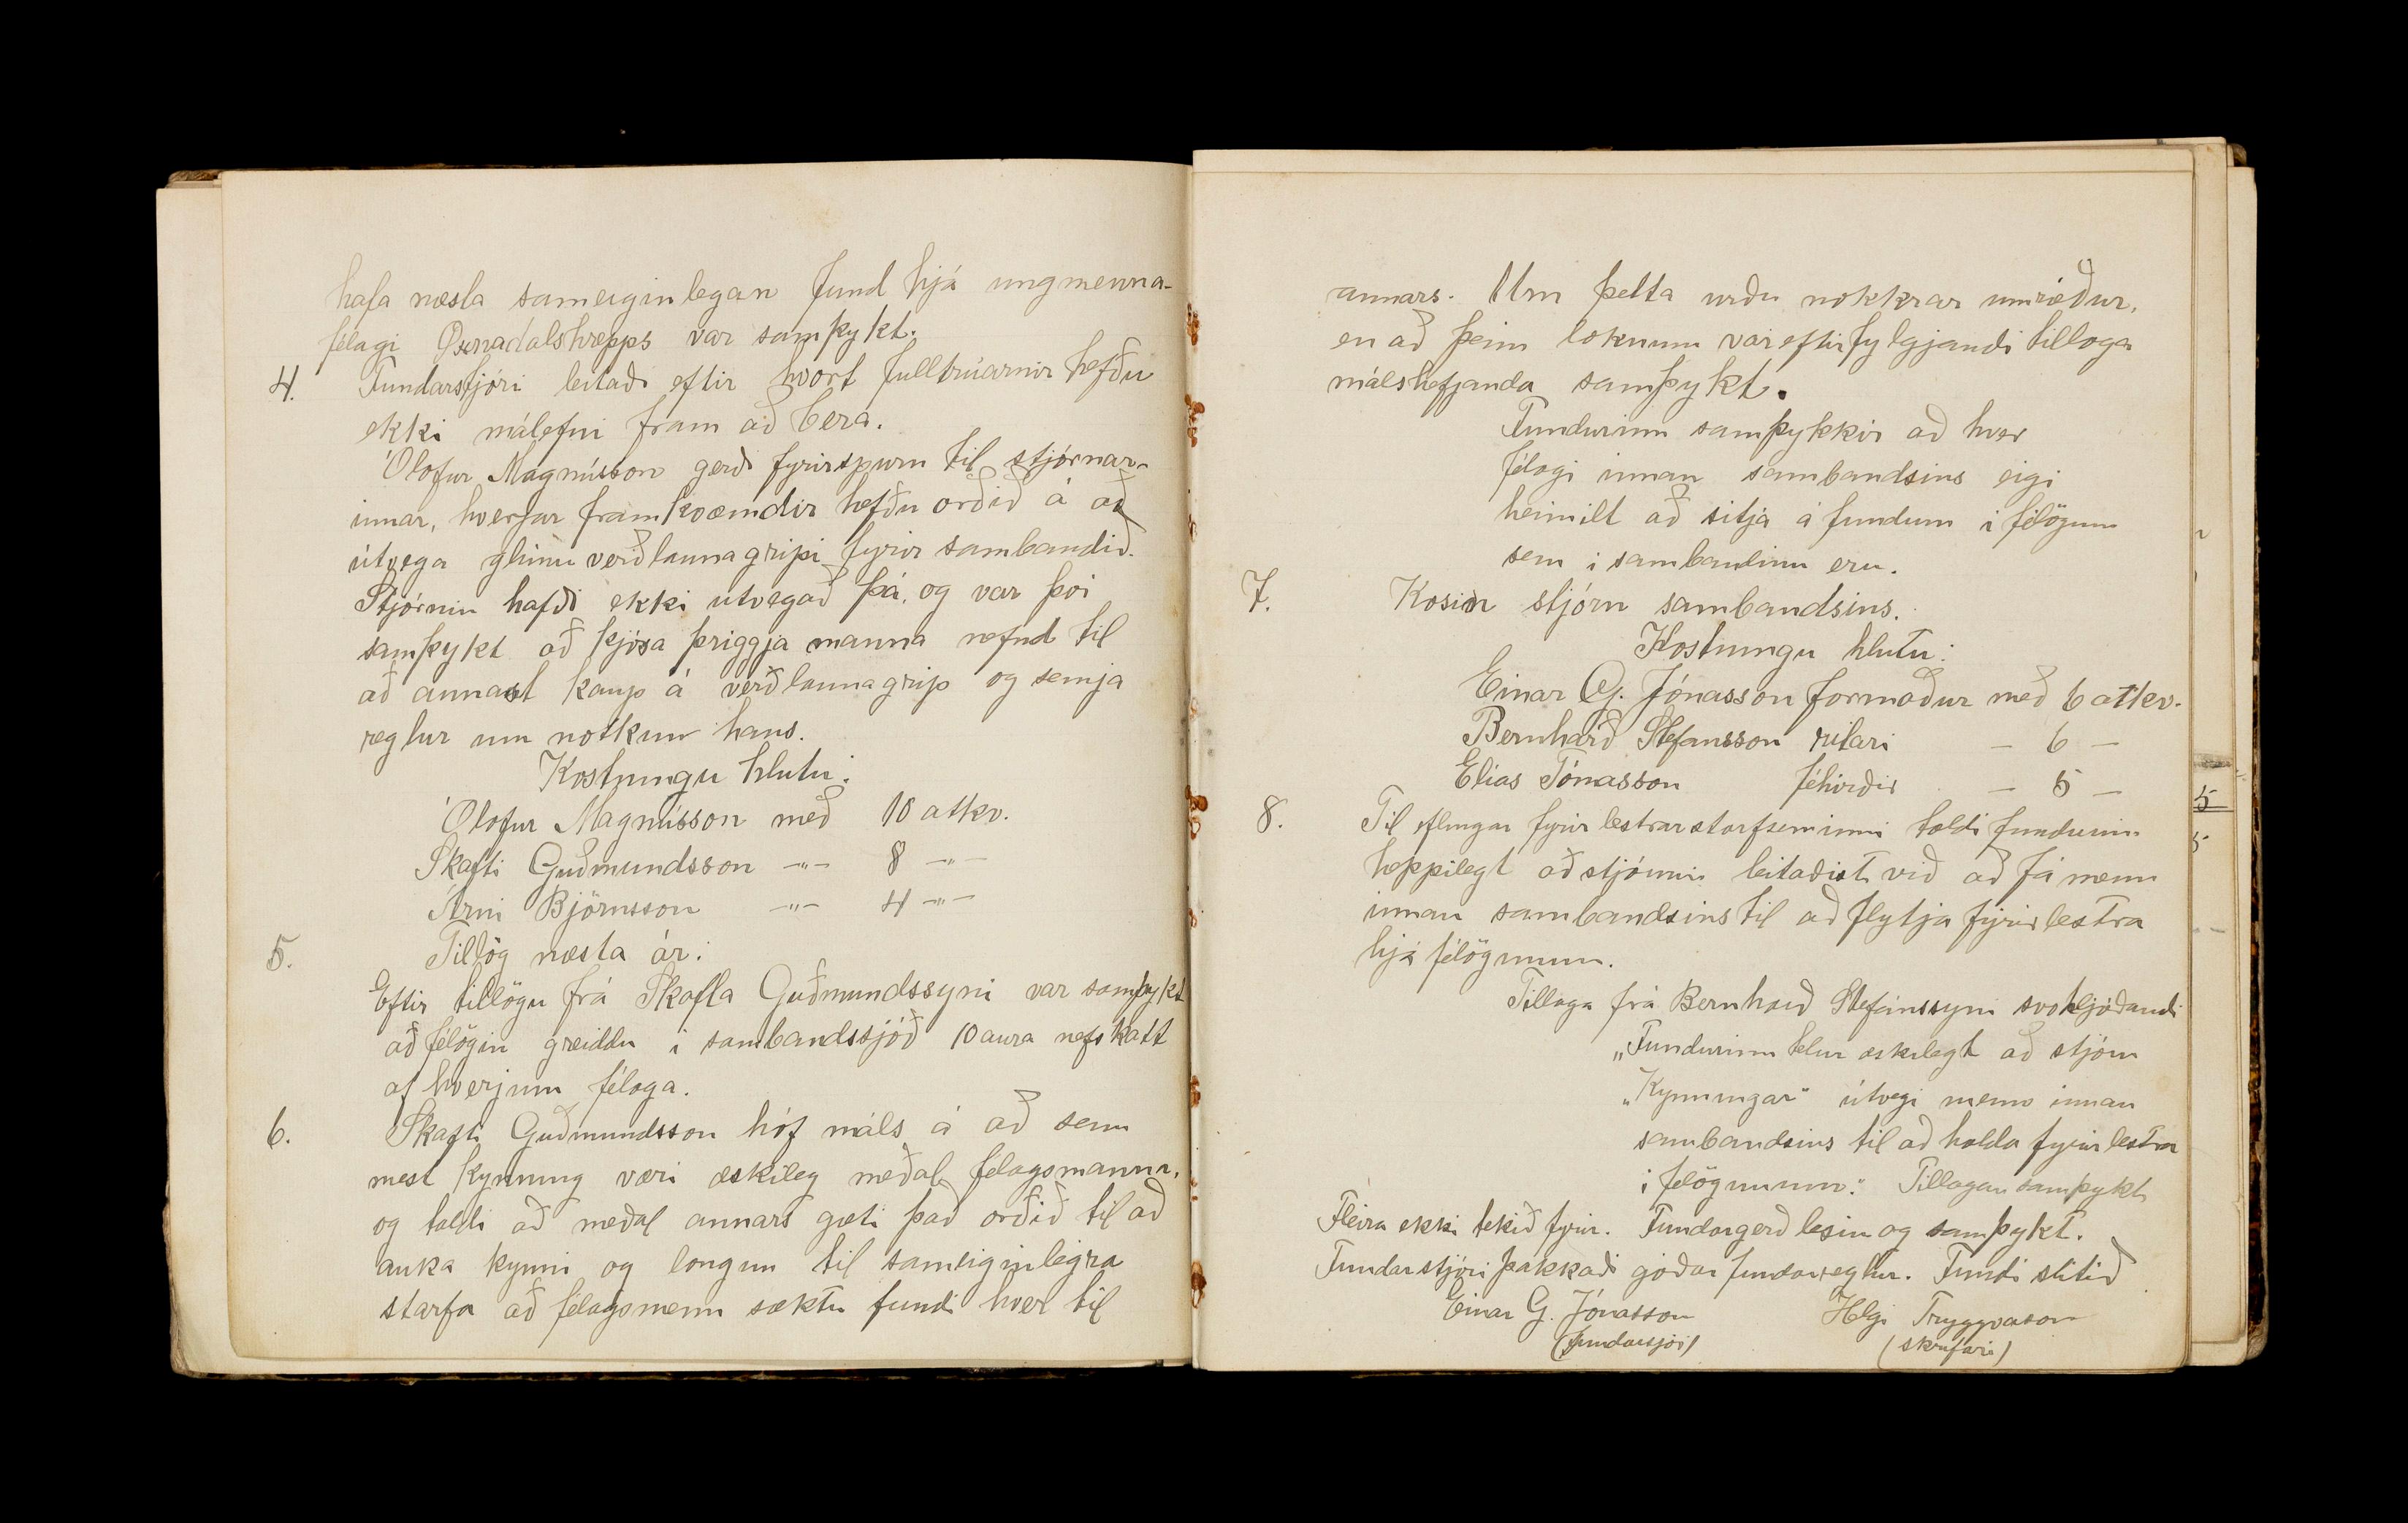 hafa næsta sameiginlegan fund hjá ungmenna-
félagi Öxnadalshrepps var samþykt.
4. Fundarstjóri leitaði eftir hvort fulltrúarnir hefðu
ekki málefni fram að bera.
Ólafur Magnússon gerði fyrirspurn til stjórnar-
innar, hverjar framkvæmdir hefðu orðið á að
útvega glímu verðlaunagripi fyrir sambandið.
Stjórnin hafði ekki útvegað þá, og var því
samþykt að kjósa þriggja manna nefnd til
að annast kaup á verðlaunagrip og semja
reglur um notkun hans.
Kostningu hlutu:
Ólafur Magnússon með 10 atkv.
Skafti Guðmundsson —"— 8 —"—
Árni Björnsson —"— 4 —"—
5. Tillög næsta ár:
Eftir tillögu frá Skafta Guðmundssyni var samþykt
að félögin greiddu í sambandssjóð 10 aura nefskatt
af hverjum félaga.
6. Skafti Guðmundsson hóf máls á að sem
mest kynning væri æskileg meðal félagsmanna,
og taldi að meðal annars gæti það orðið til að
auka kynni og longun til sameiginlegra
starfa að félagsmenn sæktu fundi hver til
annars. Um þetta urðu nokkrar umræður,
en að þeim loknum var eftirfylgjandi tillaga
málshefjanda samþykt.
Fundurinn samþykkir að hver
félagi innan sambandsins eigi
heimilt að sitja á fundum í félögum
sem í sambandinu eru.
7. Kosin stjórn sambandsins.
Kostningu hlutu:
Einar G. Jónasson formaður með 6 atkv.
Bernharð Stefansson ritari — 6 —
Elías Tómasson féhirðir — 5 —
8. Til eflingar fyrirlestrarstarfseminni taldi fundurinn
heppilegt að stjórnin leitaðist við að fá menn
innan sambandsins til að flytja fyrirlestra
hjá félögunum.
Tillaga frá Bernharð Stefánssyni svohljóðandi
„Fundurinn telur æskilegt að stjórn
„Kynningar" útvegi menn innan
sambandsins til að halda fyrirlestra
í félögunum." Tillagan samþykt
Fleira ekki tekið fyrir. Fundargerð lesin og samþykt.
Fundarstjóri þakkaði góðar fundarreglur. Fundi slitið
Einar G. Jónasson Helgi Tryggvason
(fundarsjóri) (skrifari)
5
5